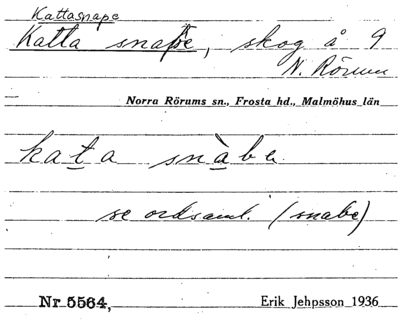 Kattasnape
Katta snape, skog å 9
N. Rörum
Norra Rörums sn., Frosta hd., Malmöhus län
kata snàbe
se ordsaml. (snabe)
Nr 5564,
Erik Jehpsson 1936